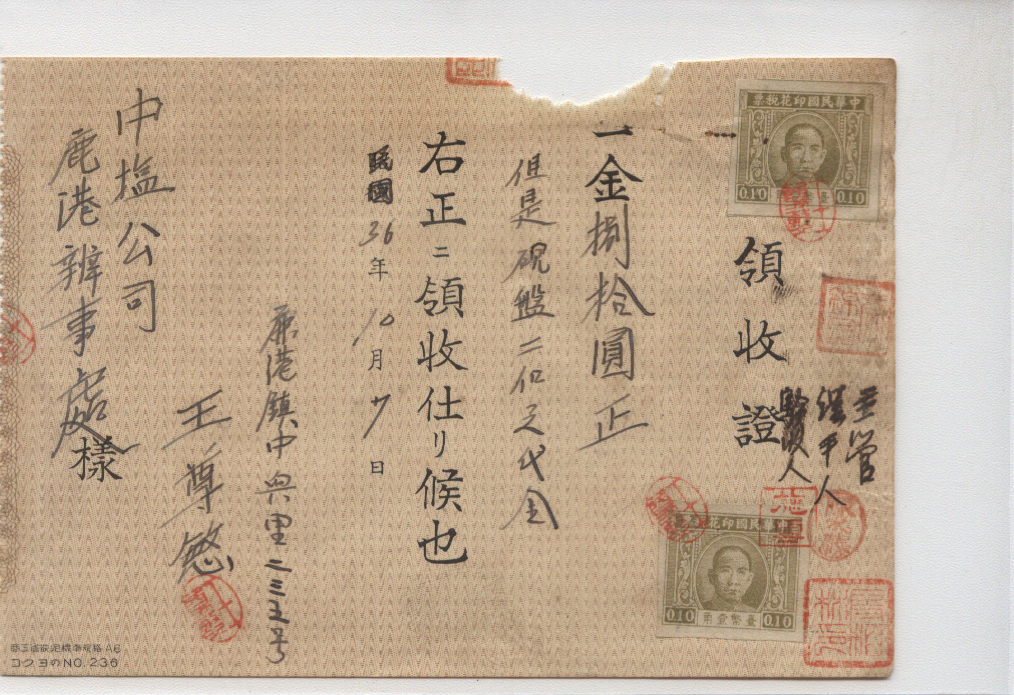 中華民國印花稅票
0.10 0.10
領收證
主管
經手人
驗收人
中華民國印花稅票
0.10 臺幣壹用 0.10
一金捌拾圓正
但是硯盤二個之代金
右正ニ領收仕リ候也
民國36年10月 日
鹿港鎮中興里二三五号
王尊
中塩公司
鹿港辦事處樣
コクヨのNO.236